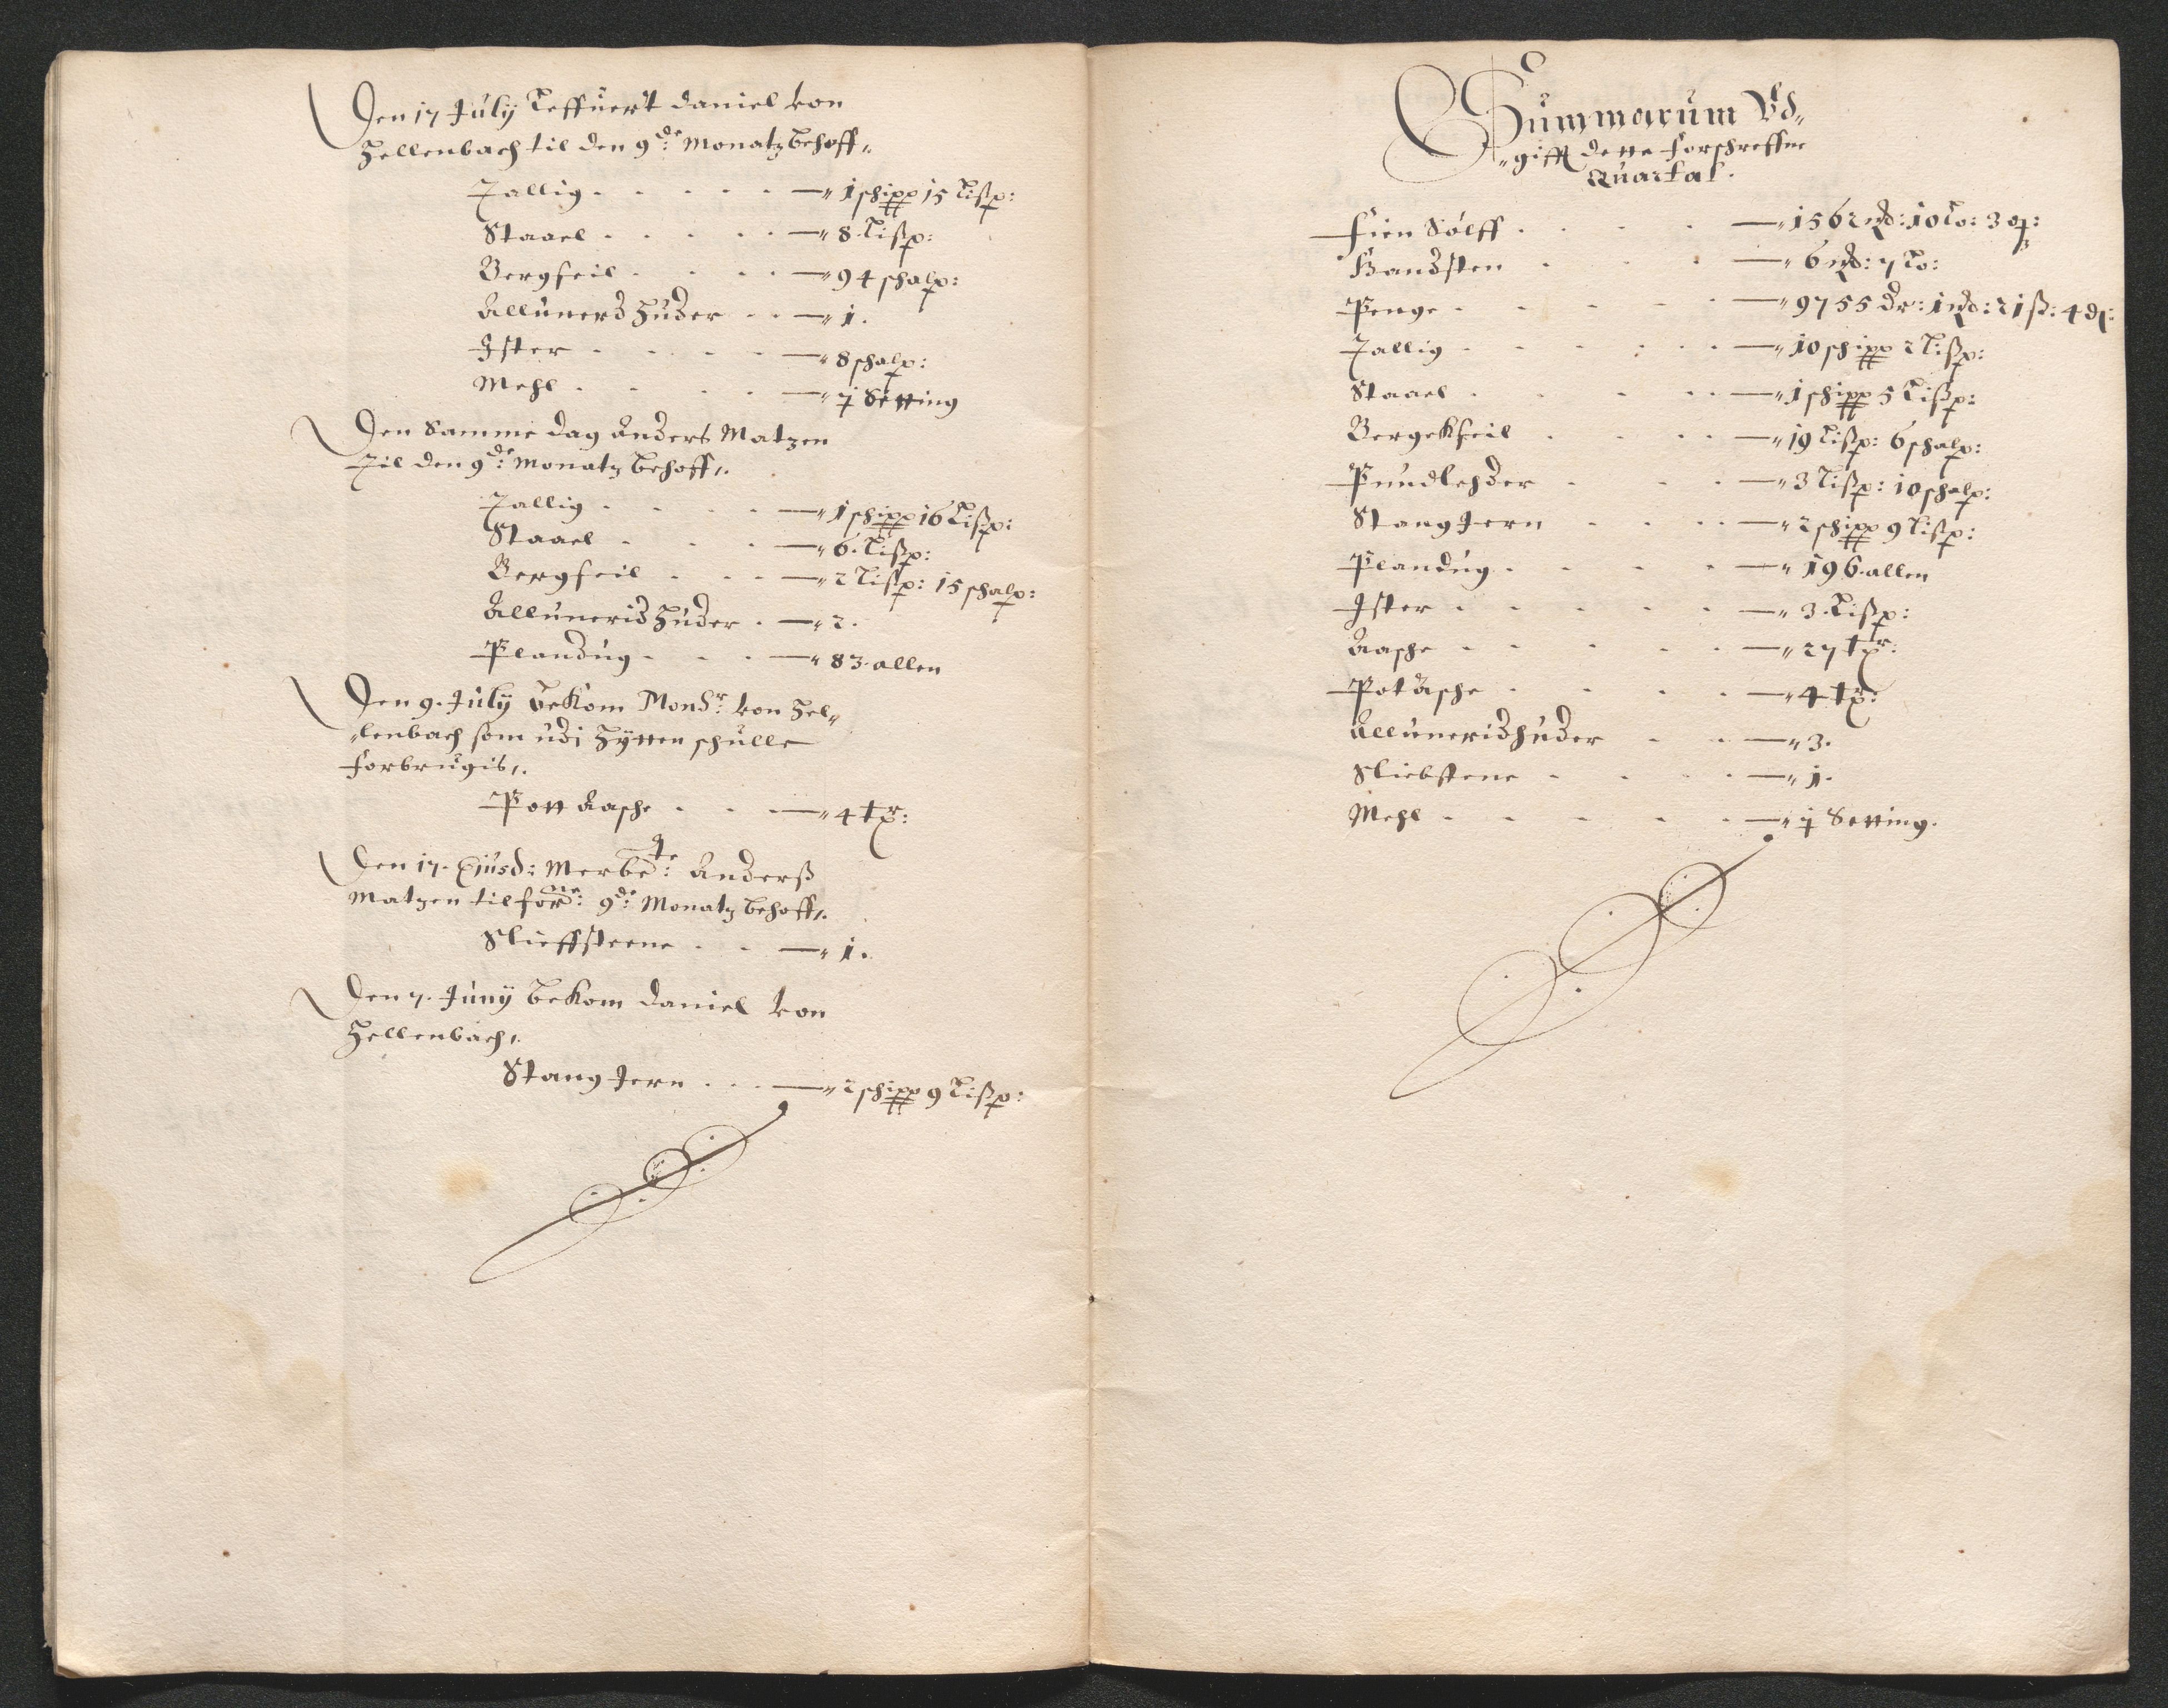 Den 17 July Leffuert Daniel von
Hellenbach til den 9de: Monatz behoff,,
Tallig . . . . . —,, 1 schipp 15 Lißp:
Staael . . . . . —,, 8. Lißp:
Bergfeil . . . . —,, 94 schalp:
Allunerd Huder . . —,, 1.
Ister . . . . . —,, 8 schalp:
Mehl . . . . —,, 7 Setting
Den Samme dag Anders Matzen
Til den 9de: Monatz behoff,.
Tallig . . . . —,, 1 schipp 16 Lißp:
Staael . . . —,, 6. Lißp:
Bergfeil . . . —,, 2 Lißp: 15 schalp:
Allunerid Huder . —,, 2.
Plandug . . . —,, 83. allen
Den 9. July bekom Monsr: von Hel,,
,,lenbach som udi Hytten schulle
forbrugis,.
Pott Aasche . . . —,, 4 tr:
Den 17. Ejusd: Merbte: Anderß
Matzen til forne: 9de: Monatz behoff,.
Slieffsteene . . —,, 1.
Den 7. Juny bekom Daniel von
Hellenbach,.
Stang Jern . . . —,, 2 schipp 9 Lißp:
Summarum Vd,,
,,gifft dette forschreffne
Quartal.
Fien Sølff . . . . —,, 1562 : 10 Lo: 3
Handsten . . . —,, 6 : 7 Lo:
Penge . . . . . —,, 9755 dr: 1 : 21 ß: 4 d:
Tallig . . . . . —,, 10 schipp 2 Lißp:
Staael . . . . . —,, 1 schipp 5 Lißp:
Bergekfeil . . . . —,, 19 Lißp: 6 schalp:
Pundlehder . . . —,, 3 Lißp: 10 schalp:
Stang Jern . . . —,, 2 schipp 9 Lißp:
Plandug . . . . —,, 196. allen
Ister . . . . . —,, 3. Lißp:
Aasche . . . . . —,, 27 tr:
Pot Asche . . . . —,, 4 tr:
Alluneridhuder . . —,, 3.
Sliebstene . . . . —,, 1.
Mehl . . . . . —,, 7 Setting.